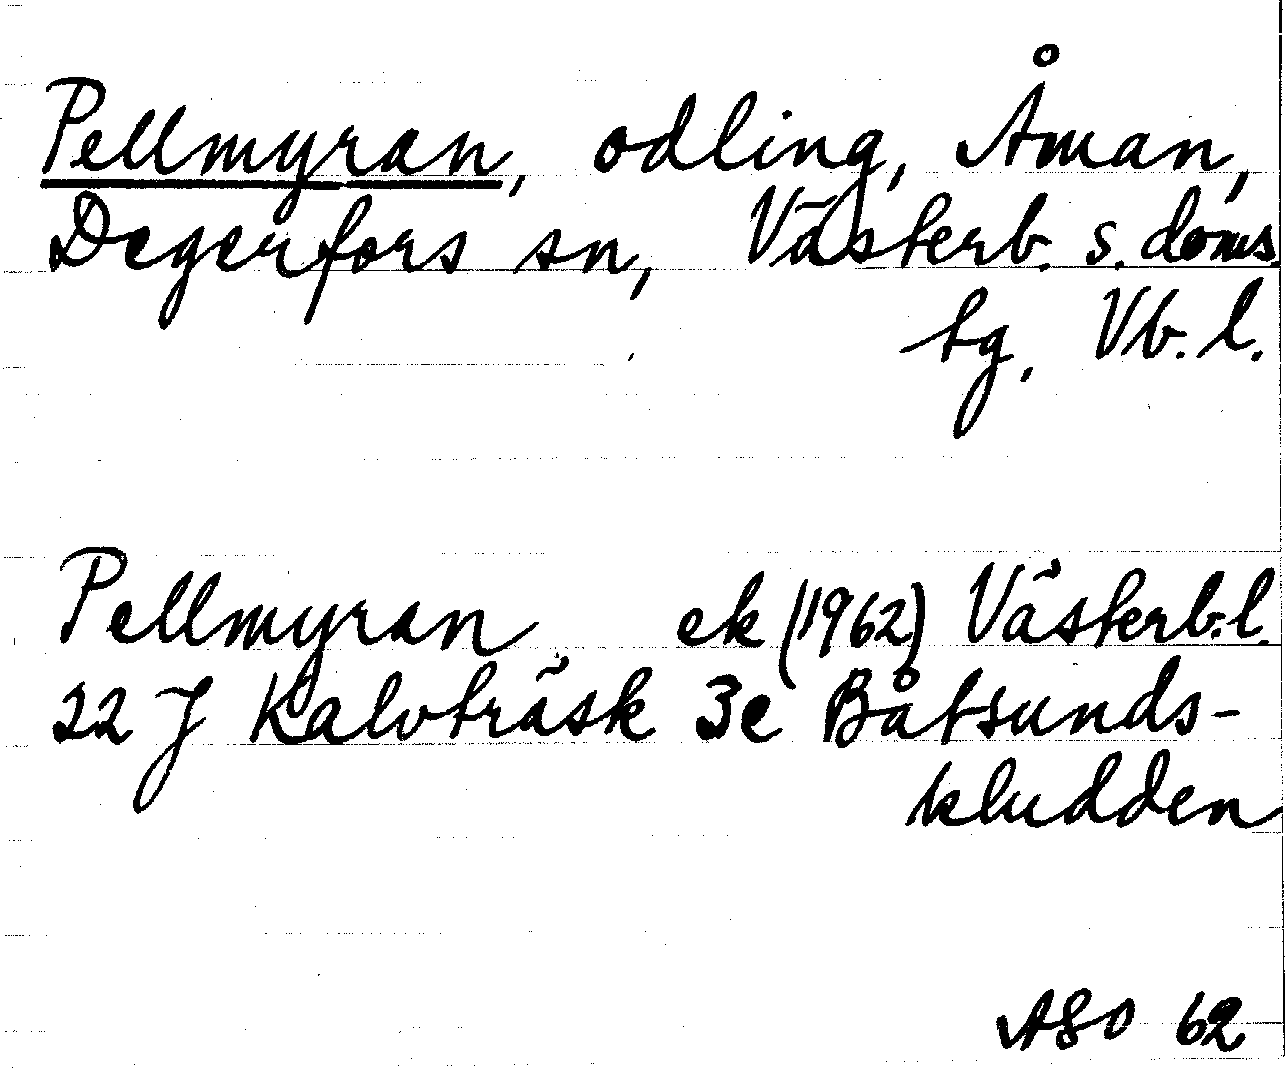 Pellmyran, odling, Åman,
Degerfors sn, Västerb. s. doms.
tg, Vb. l.
Pellmyran ek (1962) Västerb. l.
22 J Kalvträsk 3e Båtsunds-
kludden
ASO 62